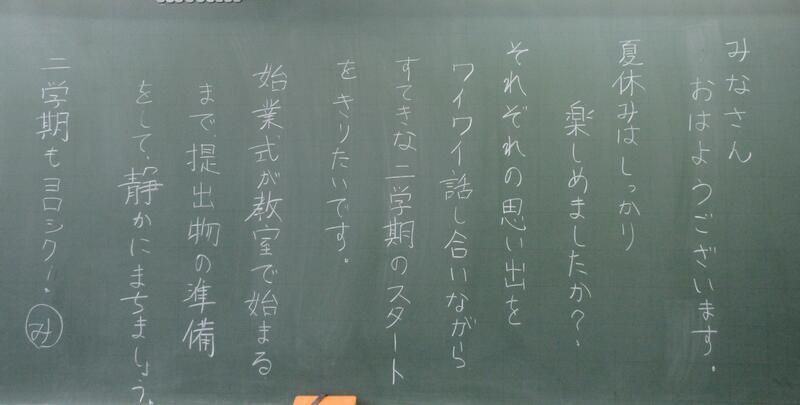 みなさん
おはようございます。
夏休みはしっかり
楽しめましたか?
それぞれの思い出を
ワイワイ話し合いながら
すてきな二学期のスタート
をきりたいです。
始業式が教室で始まる
まで、提出物の準備
をして、静かにまちましょう。
二学期もヨロシク!
み